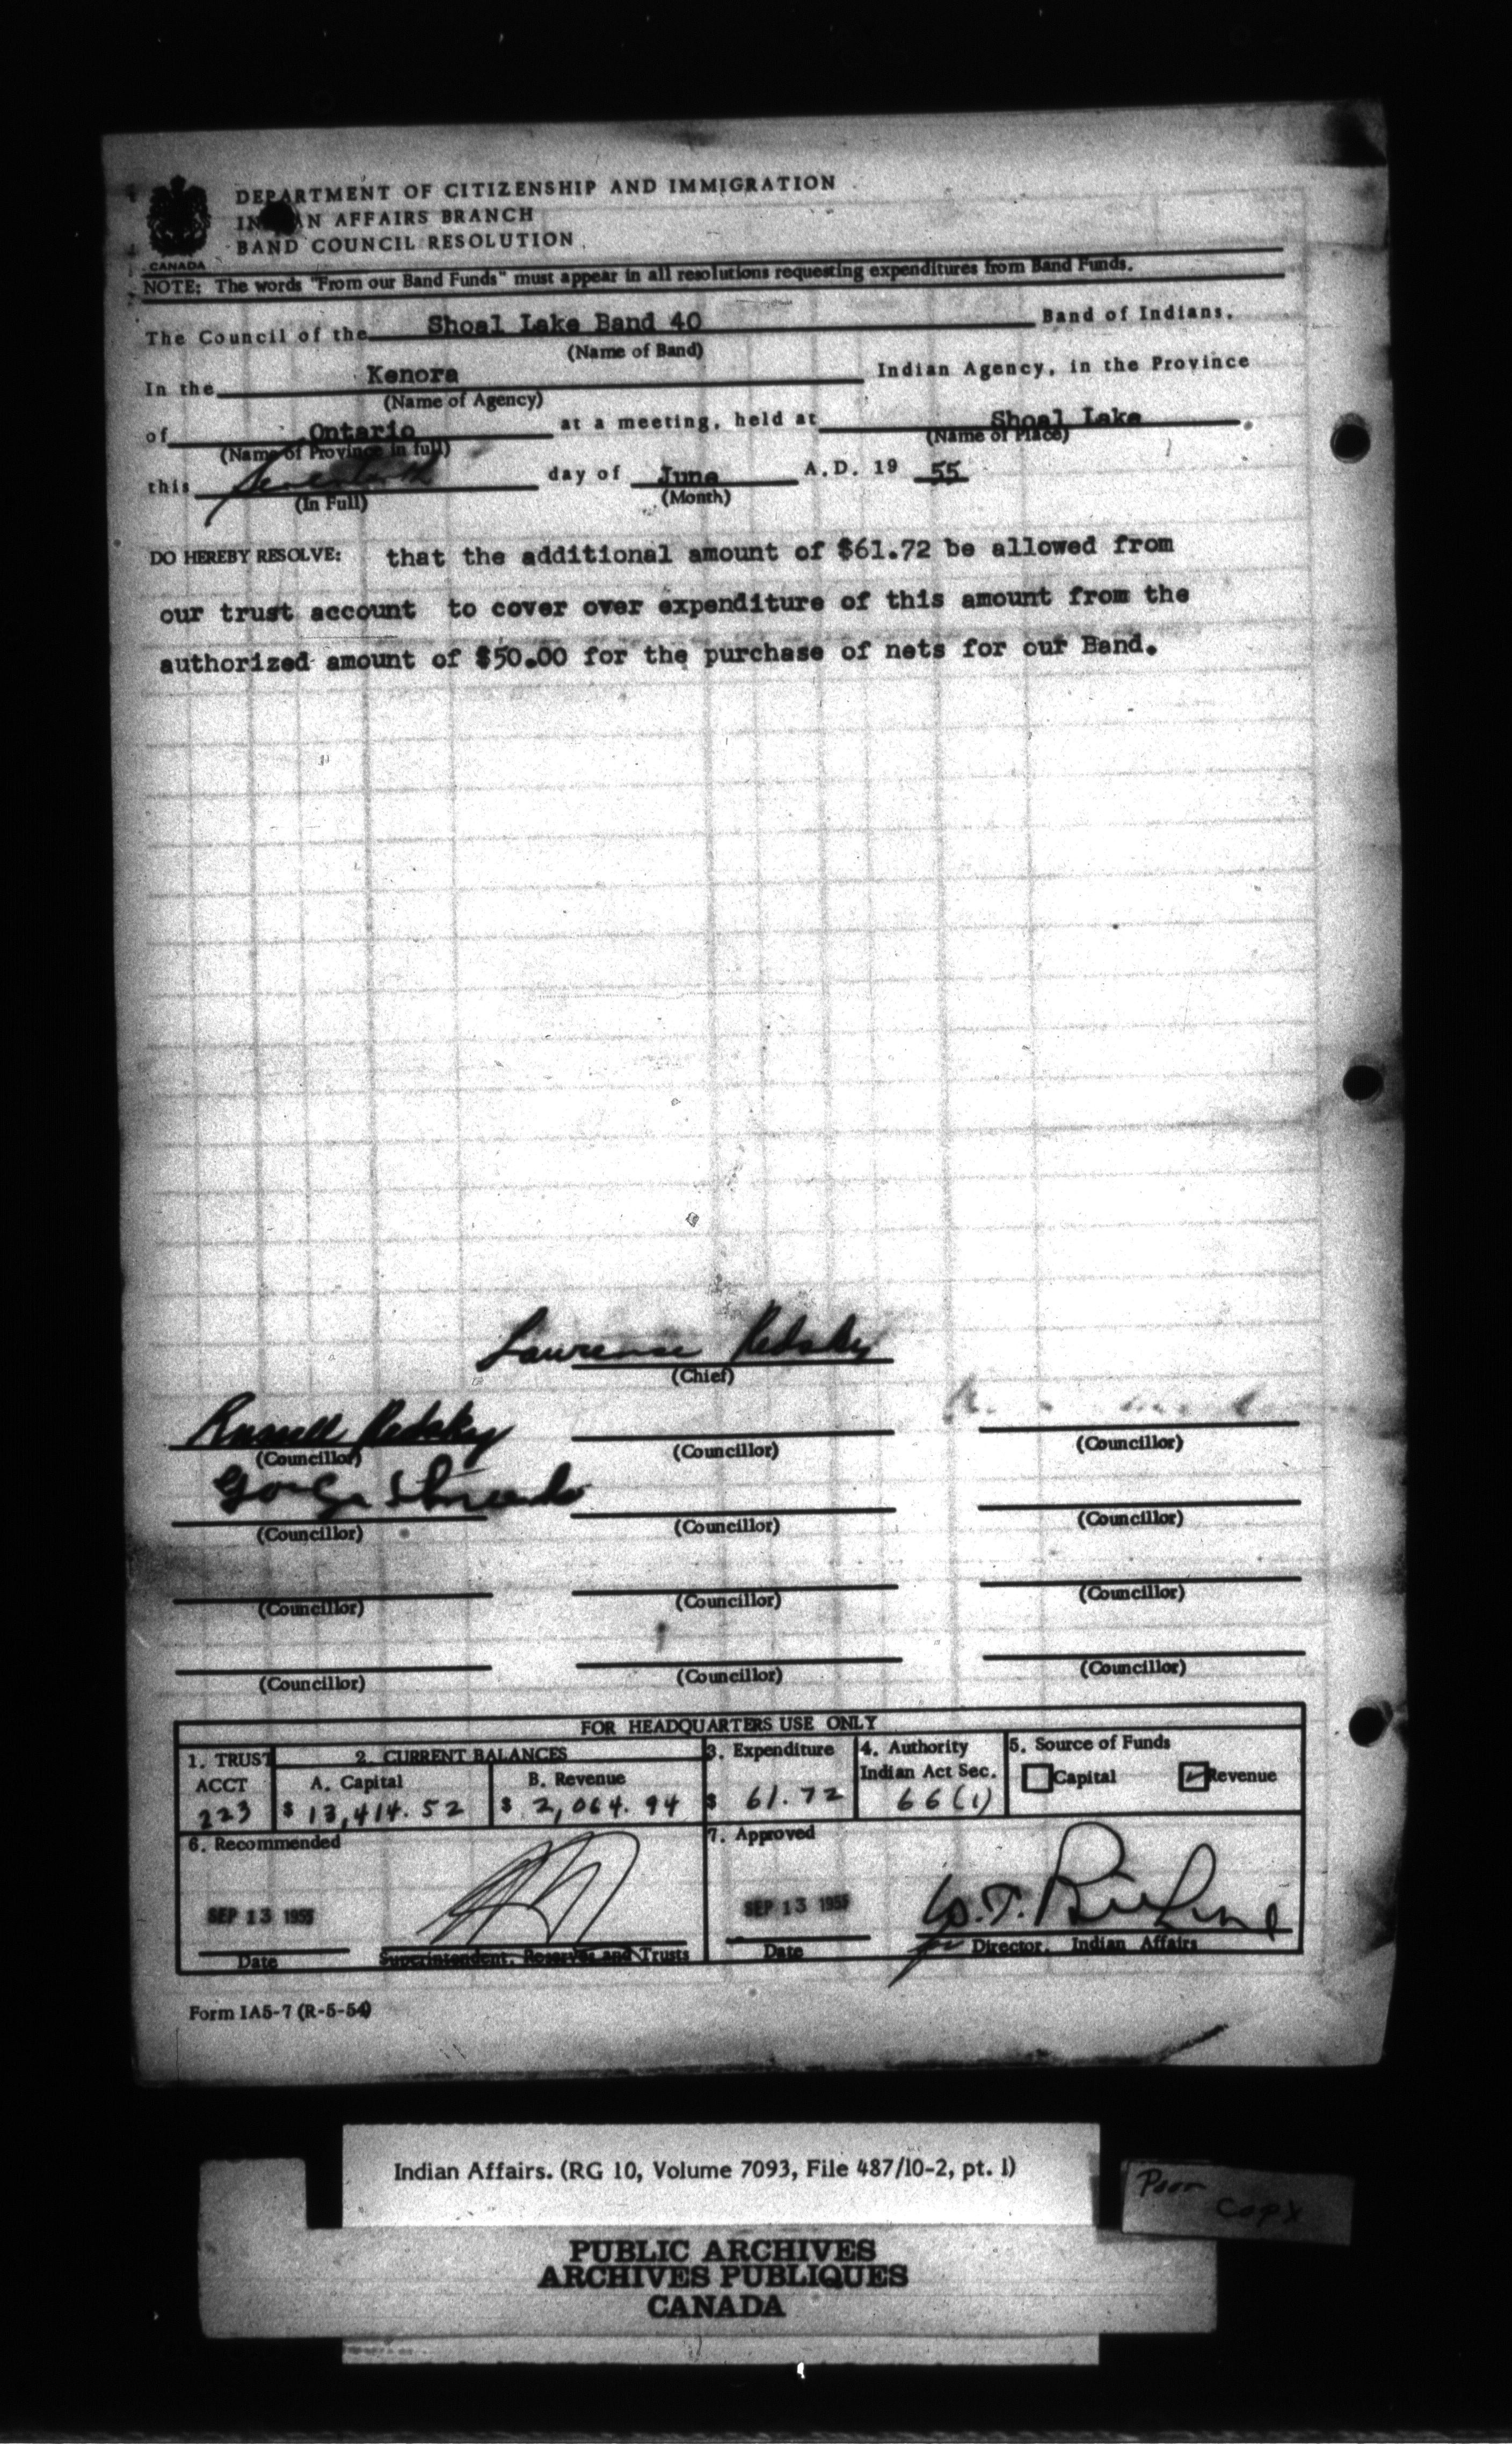 DEPARTMENT OF CITIZENSHIP AND IMMIGRATION
IN AN AFFAIRS BRANCH
BAND COUNCIL RESOLUTION
CANADA
NOTE: The words "From our Band Funds" must appear in all resolutions requesting expenditures from Band Funds.
The Council of the Shoal Lake Band 40 Band of Indians,
(Name of Band)
In the Kenora Indian Agency, in the Province
(Name of Agency)
of Ontario at a meeting, held at Shoal Lake
(Name of Province in full) (Name of Place)
this day of June A.D. 19 55
(In Full) (Month)
DO HEREBY RESOLVE: that the additional amount of $61.72 be allowed from
our trust account to cover over expenditure of this amount from the
authorized amount of $50.00 for the purchase of nets for our Band.
Lawrence Redsky
(Chief)
Russell Redsky
(Councillor) (Councillor) (Councillor)
(Councillor) (Councillor) (Councillor)
(Councillor) (Councillor) (Councillor)
(Councillor) (Councillor) (Councillor)
FOR HEADQUARTERS USE ONLY
1. TRUST ACCT 2. CURRENT BALANCES 3. Expenditure 4. Authority Indian Act Sec. 5. Source of Funds
A. Capital B. Revenue Capital Revenue
223 $ 13,414.52 $ 2,064.94 $ 61.72 66(1)
6. Recommended 7. Approved
SEP 13 1955 SEP 13 1955
Date Superintendent, Reserves and Trusts Date Director, Indian Affairs
Form IA5-7 (R-5-54)
Indian Affairs. (RG 10, Volume 7093, File 487/10-2, pt. 1)
Poor
Copy
PUBLIC ARCHIVES
ARCHIVES PUBLIQUES
CANADA